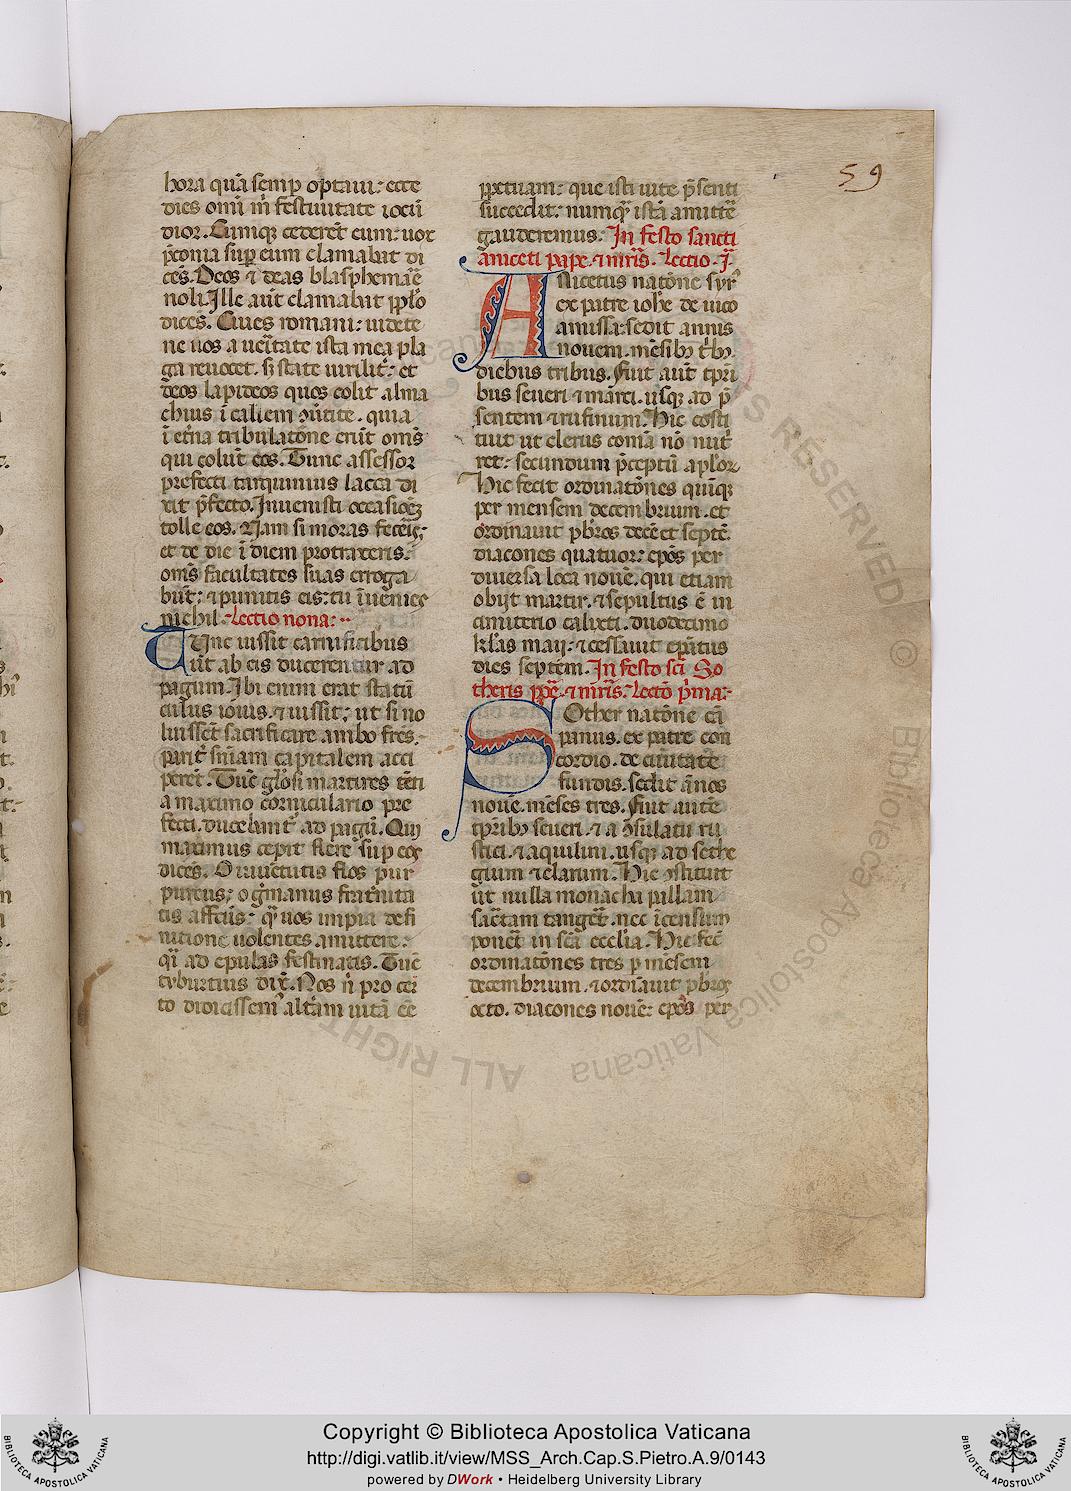 59
hora quā semp optaui: ecce
dies omī in festiuitate iocū
dior. Cumiqꝫ cederēt eum: uox
p̄conia suꝑ eum clamabat di
cēs. Deos ⁊ deas blasphemāē
noli. Ille aūt clamabat ꝓp̄lo
dicēs. Ciues romani: uidete
ne uos a uēitate ista mea pla
ga reuocet. sꝫ state uirilit᷑: et
deos lapideos quos colit alma
chius ī calicem ꝯūtite. quia
ī et᷑na tribulatōne erūt oms̄
qui colūt eos. Tunc assessor
prefecti tarquinius lacca di
xit p̄fecto. Inuenisti occasiōꝫ
tolle eos. Nam si moras fecēis;
et de die ī diem protraxeris:
oms̄ facultates suas erroga
būt: ⁊ punitis eis: tu īuēnies
nichil. Lectio nona:
Tunc iussit carnificibus
ut ab eis ducerentur ad
pagum. Ibi enim erat statū
culus iouis. ⁊ iussit; ut si no
luissēt sacrificare ambo frēs.
punit̄ sn̄iam capitalem acci
peret. Tūc gl̄osi martires tēti
a maximo corniculario pre
fecti. ducebant̄ ad pagū. Qui
maximus cepit flere suꝑ eos
dicēs. O iuuētutis flos pur
pureus; o ḡmanus frat᷑nita
tis affectꝰ: q̄ uos impia defi
nitione uolentes amittere:
q̄i ad epulas festinatis. Tūc
tyburtius dix̄. Nos nͥ pro cer
to didicissemꝰ alt᷑am uitā ēe
ꝑpetuam: que isti uite p̄senti
succedit: numqͣ istā amittē
gauderemus. In festo sancti
aniceti pape. ⁊ mr̄is. Lectio. j.
Anicetus natōne syrꝰ
ex patre ioh̄e de uico
amissa. sedit annis
nouem. mēsibꝫ t᷑bꝫ.
diebus tribus. Fuit aūt tꝑri
bus seueri ⁊ marci. usqꝫ ad p̄
sentem ⁊ rufinum. Hic costi
tuit ut clerus comā nō nut᷑
ret: secundum p̄ceptū apl̄oꝝ
Hic fecit ordinatōnes quīqꝫ
per mensem decembrium. et
ordinauit pb̄ros decē et septē.
diacones quatuor: ep̄os per
diuersa loca nouē. qui etiam
obijt martir. ⁊ sepultus ē in
cimiterio calixti. duodecimo
kl̄as maij: ⁊ cessauit ep̄atus
dies septem. In festo sc̄i So
theris pp̄e. ⁊ mr̄is. Lectō p̄ma:
Sother natōne cā
panus. ex patre con
cordio. de ciuitate
fundis. sedit ānos
nouē. mēses tres. Fuit autē
tꝑribꝫ seueri. ⁊ a ꝯsulatu ru
stici. ⁊ aquilini. usqꝫ ad sethe
gium ⁊ clarum. Hic ꝯstituit
ut nulla monacha pallam
sac̄tam tangēt. nec īcensum
ponēt in sc̄a ecclīa. Hic fec̄
ordinatōnes tres ꝑ mēsem
decembrium. ⁊ ordīauit pb̄ros
octo. diacones nouē: ep̄os per
ALL RIGHTS RESERVED © Biblioteca Apostolica Vaticana
Copyright © Biblioteca Apostolica Vaticana
http://digi.vatlib.it/view/MSS_Arch.Cap.S.Pietro.A.9/0143
powered by DWork • Heidelberg University Library
BIBLIOTECA APOSTOLICA VATICANA
BIBLIOTECA APOSTOLICA VATICANA